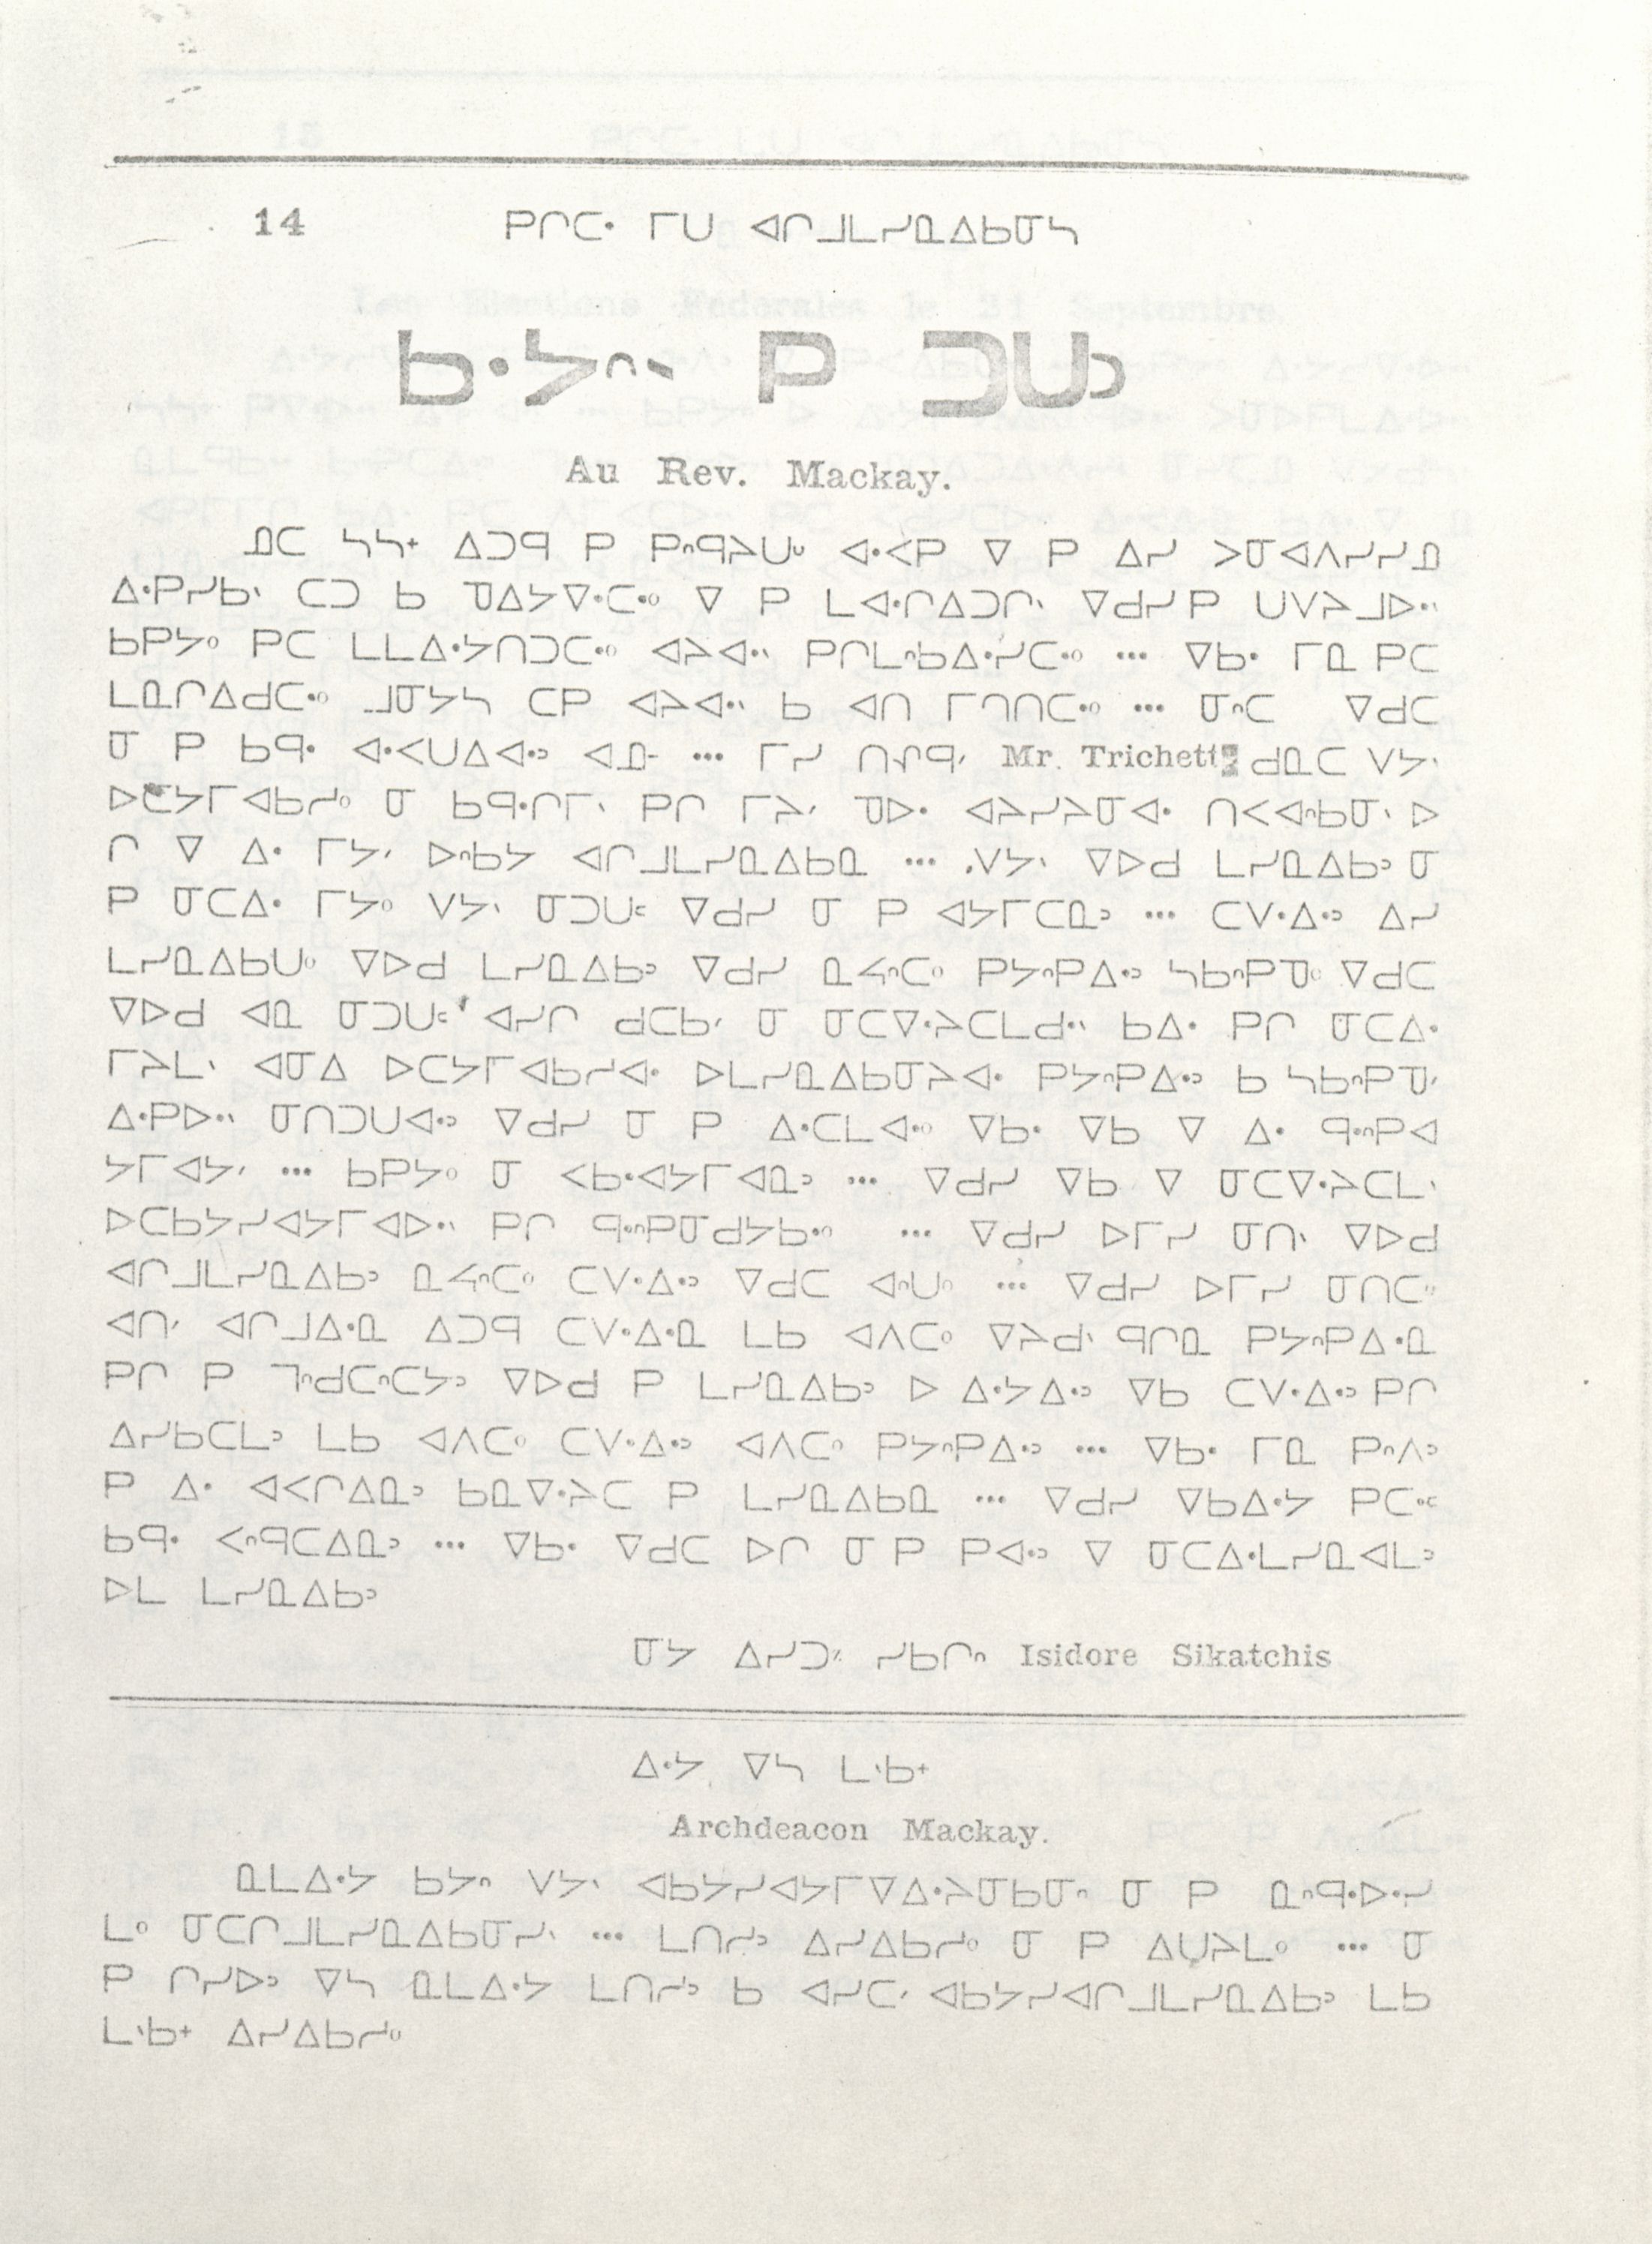 14 ᑭᒋᑕᐧ ᒥᑌ ᐊᒋᒧᒪᓯᓇᐃᑲᓂᓴ
ᑲᐧᔭᐢᐠ ᑭ ᑐᑌᐣ
Au Rev. Mackay.
ᓄᑕ ᓴᓴᐩ ᐃᑐᑫ ᑭ ᑭᐢᑫᔨᑌᐣ ᐊᐧᐸᑭ ᐁ ᑭ ᐃᓯ ᐳᓂᐊᐱᓯᓯᓄ
ᐃᐧᑭᓯᑲᐠ ᑕᑐ ᑲ ᑯᐃᔭᐁᐧᑕᐧᐤ ᐁ ᑭ ᒪᐊᐧᒋᐃᑐᒋᐠ ᐁᑯᓯ ᑭ ᑌᐯᔨᒧᐅᐧᐠ
ᑲᑭᔭᐤ ᑭᑕ ᒪᒪᐃᐧᔭᑎᑐᑕᐧᐤ ᐊᔨᐊᐧᐠ ᑭᒋᒪᐢᑲᐃᐧᓯᑕᐧᐤ ... ᐁᑲᐧ ᒥᓇ ᑭᑕ
ᒪᓇᒋᐃᑯᑕᐧᐤ ᓱᓂᔭᓴ ᑕᑭ ᐊᔨᐊᐧᐠ ᑲ ᐊᑎ ᒥᒋᑎᑕᐧᐤ ... ᓂᐢᑕ ᐁᑯᑕ
ᓂ ᑭ ᑲᑫᐧ ᐊᐧᐸᑌᐃᐊᐧᐣ ᐊᓄᐨ ... ᒥᓯ ᑎᔑᑫᐟ Mr. Trichett ᑯᓇᑕ ᐯᔭᐠ
ᐅᑕᔭᒥᐊᑲᓯᐤ ᓂ ᑲᑫᐧᒋᒥᐠ ᑭᒋ ᒥᔨᐟ ᑯᐅᐧ ᐊᔨᓯᔨᓂᐊᐧ ᑎᐸᐊᐢᑲᓂᐠ ᐅ
ᒋ ᐁ ᐃᐧ ᒥᔭᐟ ᐅᐢᑲᔭ ᐊᒋᒧᒪᓯᓇᐃᑲᓇ ... ᐯᔭᐠ ᐁᐅᑯ ᒪᓯᓇᐃᑲᐣ ᓂ
ᑭ ᓂᑕᐃᐧ ᒥᔭᐤ ᐯᔭᐠ ᓂᑐᑌᑦ ᐁᑯᓯ ᓂ ᑭ ᐊᔭᒥᑕᓇᐣ ... ᑕᐯᐧᐃᐧᐣ ᐃᓯ
ᒪᓯᓇᐃᑲᑌᐤ ᐁᐅᑯ ᒪᓯᓇᐃᑲᐣ ᐁᑯᓯ ᓇᐢᑕᐤ ᑭᔭᐢᑭᐃᐧᐣ ᓴᑲᐢᑭᓀᐤ ᐁᑯᑕ
ᐁᐅᑯ ᐊᓇ ᓂᑐᑌᑦ ᐊᓯᒋ ᑯᑕᑲᐟ ᓂ ᓂᑕᐁᐧᔨᑕᒪᑯᐠ ᑲᐃᐧ ᑭᒋ ᓂᑕᐃᐧ
ᒥᔨᒪᐠ ᐊᓂᐃ ᐅᑕᔭᒥᐊᑲᓯᐊᐧ ᐅᒪᓯᓇᐃᑲᓂᔨᐊᐧ ᑭᔭᐢᑭᐃᐧᐣ ᑲ ᓴᑲᐢᑭᓀᐟ
ᐃᐧᑭᐅᐧᐠ ᓂᑎᑐᑌᐊᐧᐣ ᐁᑯᓯ ᓂ ᑭ ᐃᐧᑕᒪᐊᐧᐤ ᐁᑲᐧ ᐁᑲ ᐁ ᐃᐧ ᑫᐧᐢᑭᐊ
ᔭᒥᐊᔭᐟ ... ᑲᑭᔭᐤ ᓂ ᐸᑲᐧᐊᔭᒥᐊᓇᐣ ... ᐁᑯᓯ ᐁᑲ ᐁ ᓂᑕᐁᐧᔨᑕᒪᐠ
ᐅᑕᑲᔭᓯᐊᔭᒥᐊᐅᐧᐠ ᑭᒋ ᑫᐧᐢᑭᓂᑯᔭᑲᐧᐤ ... ᐁᑯᓯ ᐅᒥᓯ ᓂᑎᐠ ᐁᐅᑯ
ᐊᒋᒧᒪᓯᓇᐃᑲᐣ ᓇᐢᑕᐤ ᑕᐯᐧᐃᐧᐣ ᐁᑯᑕ ᐊᐢᑌᐤ ... ᐁᑯᓯ ᐅᒥᓯ ᓂᑎᑕᐤ
ᐊᑎᐟ ᐊᒋᒧᐃᐧᓇ ᐃᑐᑫ ᑕᐯᐧᐃᐧᓇ ᒪᑲ ᐊᐱᑕᐤ ᐁᔨᑯᐠ ᑫᒋᓇ ᑭᔭᐢᑭᐃᐧᓇ
ᑭᒋ ᑭ ᒣᐢᑯᑕᐢᑕᔭᐣ ᐁᐅᑯ ᑭ ᒪᓯᓇᐃᑲᐣ ᐅ ᐃᐧᔭᐃᐧᐣ ᐁᑲ ᑕᐯᐧᐃᐧᐣ ᑭᒋ
ᐃᓯᑲᑕᒪᐣ ᒪᑲ ᐊᐱᑕᐤ ᑕᐯᐧᐃᐧᐣ ᐊᐱᑕᐤ ᑭᔭᐢᑭᐃᐧᐣ ... ᐁᑲᐧ ᒥᓇ ᑭᐢᐱᐣ
ᑭ ᐃᐧ ᐊᐸᒋᐃᓇᐣ ᑲᓇᐁᐧᔨᑕ ᑭ ᒪᓯᓇᐃᑲᓇ ... ᐁᑯᓯ ᐁᑲᐃᐧᔭ ᑭᑕᐧᑦ
ᑲᑫᐧ ᐸᐢᑫᑕᐃᓇᐣ ... ᐁᑲᐧ ᐁᑯᑕ ᐅᒋ ᓂ ᑭ ᑭᐊᐧᐣ ᐁ ᓂᑕᐃᐧᒪᓯᓇᐊᒪᐣ
ᐅᒪ ᒪᓯᓇᐃᑲᐣ
ᓂᔭ ᐃᓯᑐᕁ ᓯᑲᒋᐢ Isidore Sikatchis
ᐃᐧᔭ ᐁᓴ ᒪᐠᑲᐩ
Archdeacon Mackay.
ᓇᒪᐃᐧᔭ ᑲᔭᐢ ᐯᔭᐠ ᐊᑲᔭᓯᐊᔭᒥᐁᐃᐧᔨᓂᑲᓂᐢ ᓂ ᑭ ᓇᐢᑫᐧᐅᐧᓯ
ᒪᐤ ᓂᑕᒋᒧᒪᓯᓇᐃᑲᓂᓯᐠ ... ᒪᑎᓯᐣ ᐃᓯᐃᑲᓯᐤ ᓂ ᑭ ᐃᑌᔨᒪᐤ ... ᓂ
ᑭ ᒋᓯᐅᐣ ᐁᓴ ᓇᒪᐃᐧᔭ ᒪᑎᓯᐣ ᑲ ᐊᓯᑕᐟ ᐊᑲᔭᓯᐊᒋᒧᒪᓯᓇᐃᑲᐣ ᒪᑲ
ᒪᐠᑲᐩ ᐃᓯᐃᑲᓯᐤ